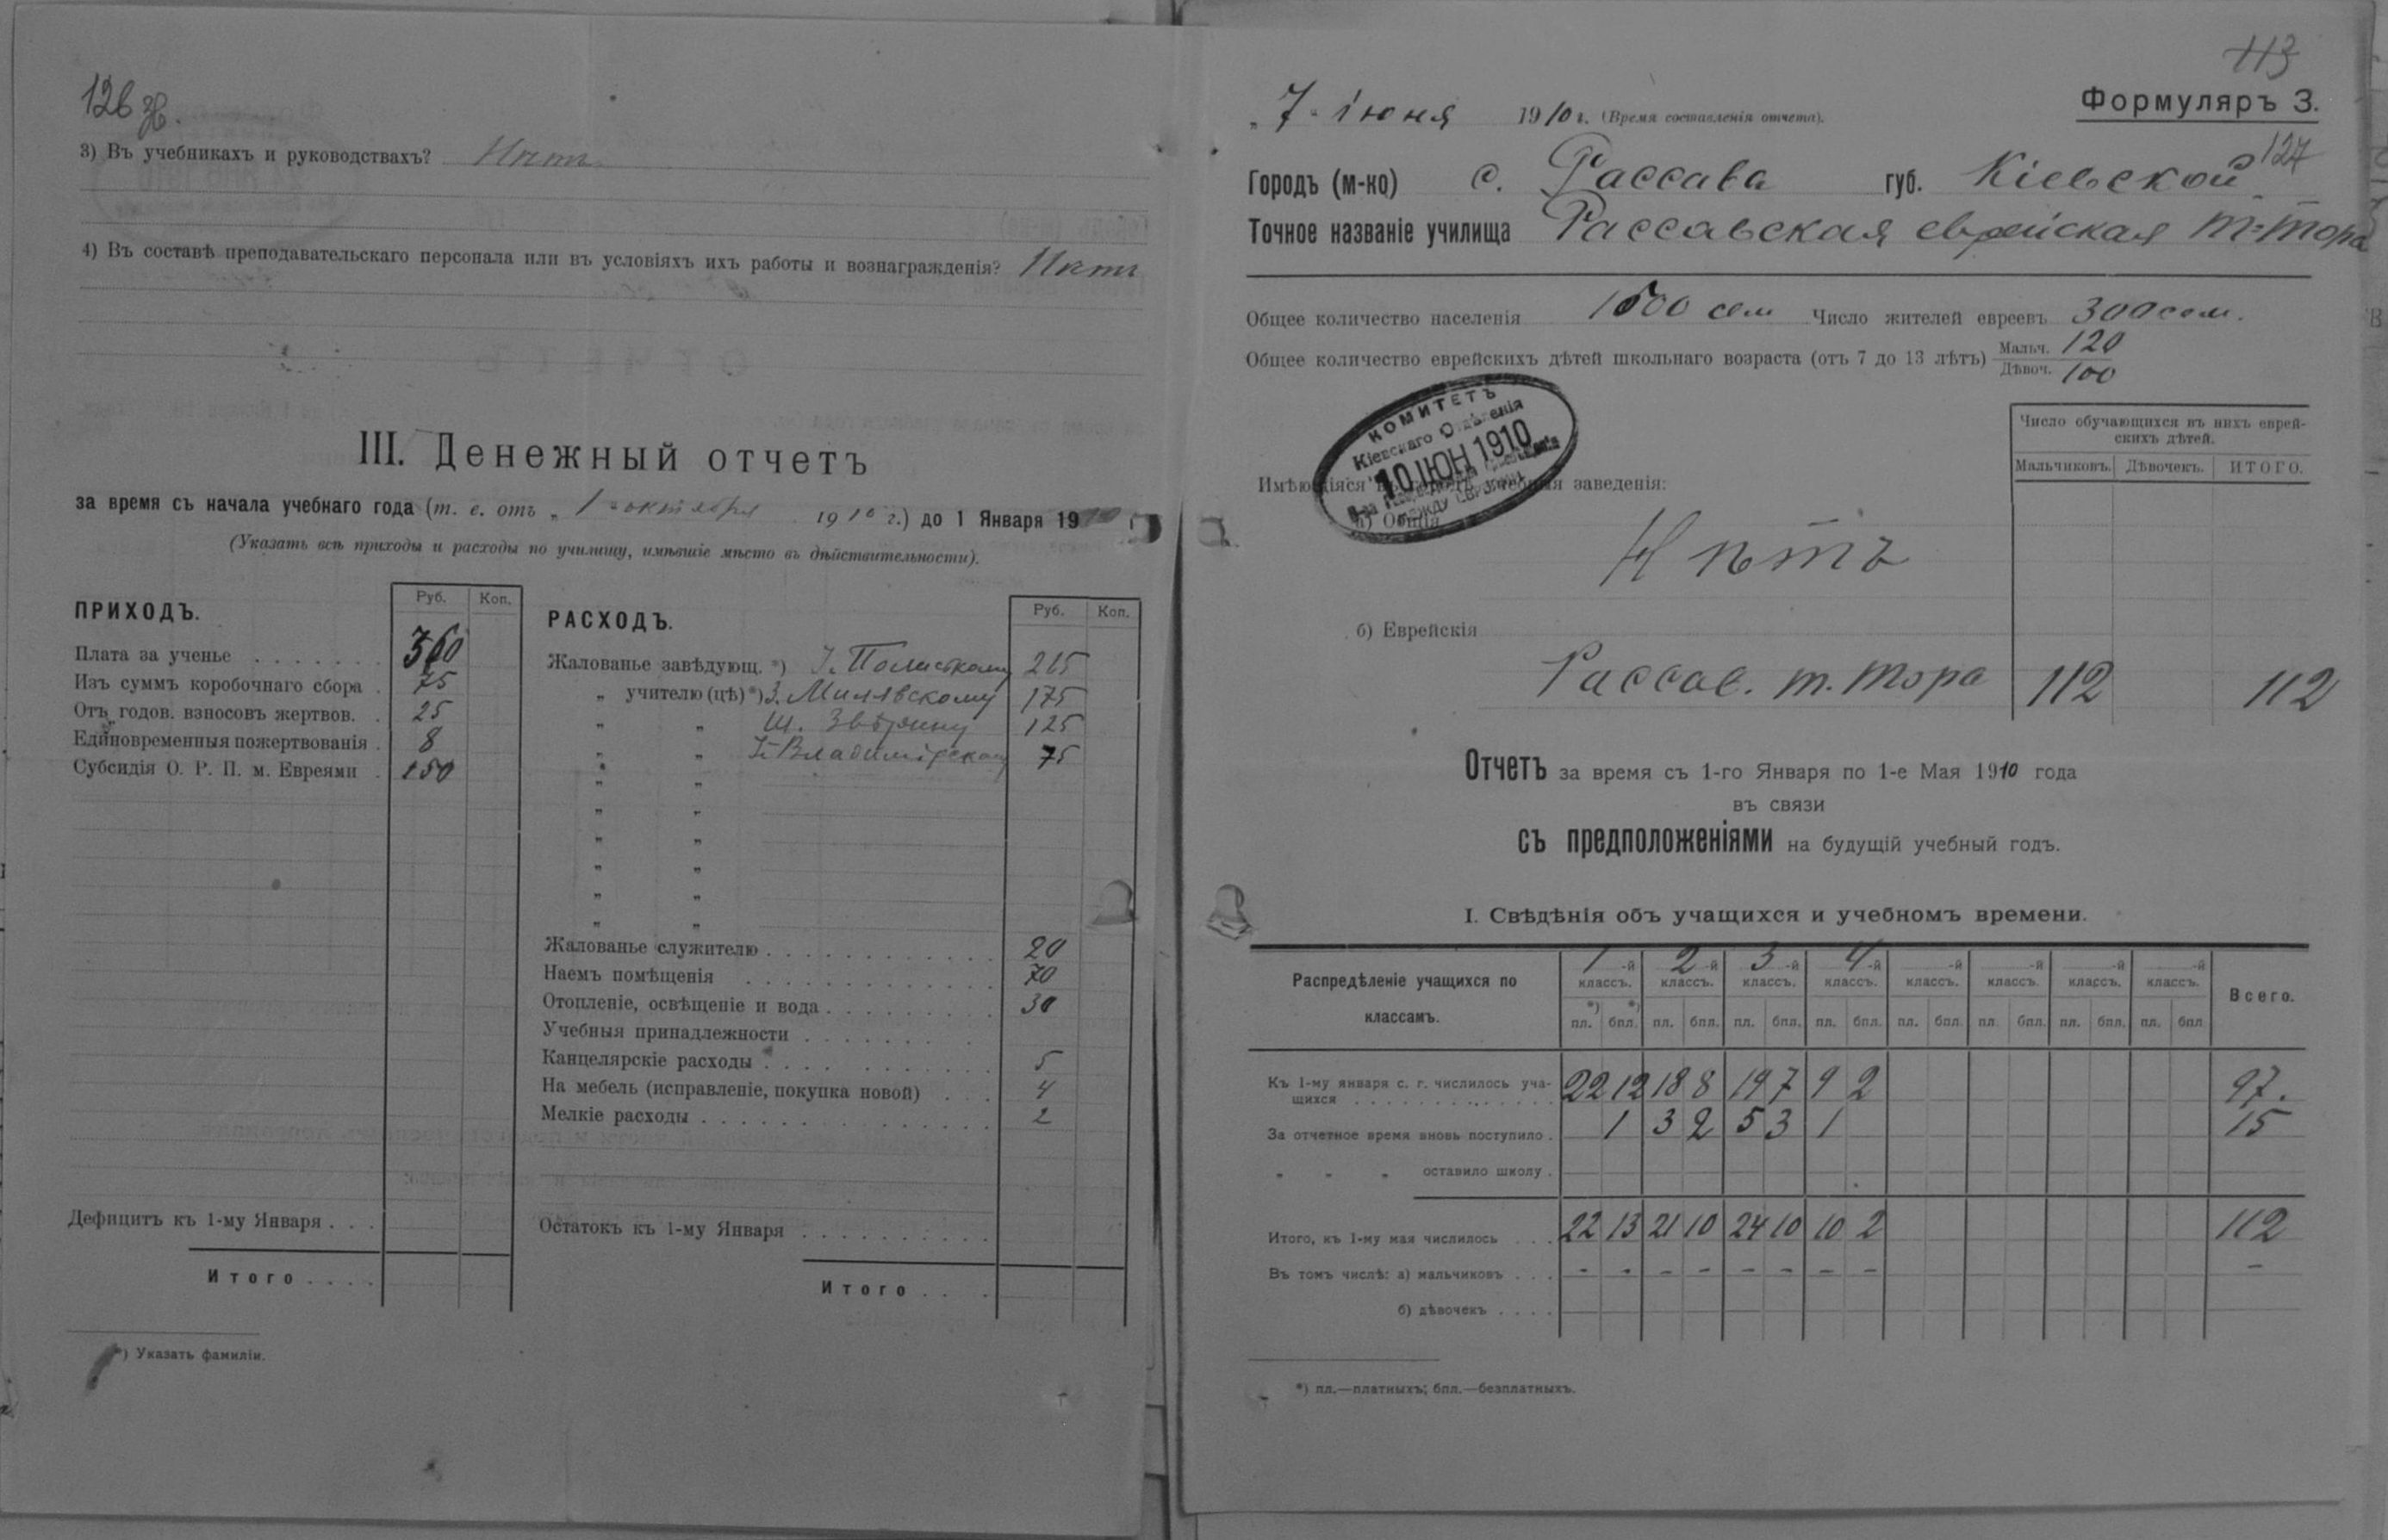 126 об.
3) Въ учебникахъ и руководствахъ? Нѣтъ
4) Въ составѣ преподавательскаго персонала или въ условіяхъ ихъ работы и вознагражденія? Нѣтъ
III. Денежный отчетъ
за время съ начала учебнаго года (т. е. отъ „ 1 " октября 1910 г.) до 1 Января 19
(Указать всѣ приходы и расходы по училищу, имѣвшіе мѣсто въ дѣйствительности).
ПРИХОДЪ. Руб. Коп.
Плата за ученье 360
Изъ суммъ коробочнаго сбора 75
Отъ годов. взносовъ жертвов. 25
Единовременныя пожертвованія 8
Субсидія О. Р. П. м. Евреями 150
Дефицитъ къ 1-му Января
Итого
*) Указать фамиліи.
РАСХОДЪ. Руб. Коп.
Жалованье завѣдующ. *) 215
„ учителю (цѣ) *) З. Милявскому 175
„ „ Ш. Звѣрину 125
„ „ Владимірскому 75
„ „
„ „
„ „
„ „
„ „
„ „
Жалованье служителю 20
Наемъ помѣщенія 70
Отопленіе, освѣщеніе и вода 30
Учебныя принадлежности
Канцелярскіе расходы 5
На мебель (исправленіе, покупка новой) 4
Мелкіе расходы 2
Остатокъ къ 1-му Января
Итого
113
Формуляръ 3.
„ 7 " іюня 1910 г. (Время составленія отчета).
127
Городъ (м-ко) с. Россава губ. Кіевской
Точное названіе училища Россавская еврейская т-тора
Общее количество населенія 1500 сем Число жителей евреевъ 300 сем.
Общее количество еврейскихъ дѣтей школьнаго возраста (отъ 7 до 13 лѣтъ) Мальч. 120
Дѣвоч. 100
КОМИТЕТЪ
Кіевскаго Отдѣленія
10 ІЮН 1910
МЕЖДУ ЕВРЕЯМИ
Число обучающихся въ нихъ еврей-
скихъ дѣтей.
Мальчиковъ. Дѣвочекъ. ИТОГО.
Имѣющіяся въ городѣ учебныя заведенія:
а) Общія
Нѣтъ
б) Еврейскія
Россав. т. тора 112 112
Отчетъ за время съ 1-го Января по 1-е Мая 1910 года
въ связи
съ предположеніями на будущій учебный годъ.
I. Свѣдѣнія объ учащихся и учебномъ времени.
Распредѣленіе учащихся по классамъ. 1-й классъ. 2-й классъ. 3-й классъ. 4-й классъ. -й классъ. -й классъ. -й классъ. -й классъ. Всего.
*) *)
пл. бпл. пл. бпл. пл. бпл. пл. бпл. пл. бпл. пл. бпл. пл. бпл. пл. бпл
Къ 1-му января с. г. числилось уча-
щихся 22 12 18 8 19 7 9 2 97.
За отчетное время вновь поступило 1 3 2 5 3 1 15
„ „ „ оставило школу
Итого, къ 1-му мая числилось 22 13 21 10 24 10 10 2 112
Въ томъ числѣ: а) мальчиковъ - - - - - - - - -
б) дѣвочекъ
*) пл.—платныхъ; бпл.—безплатныхъ.